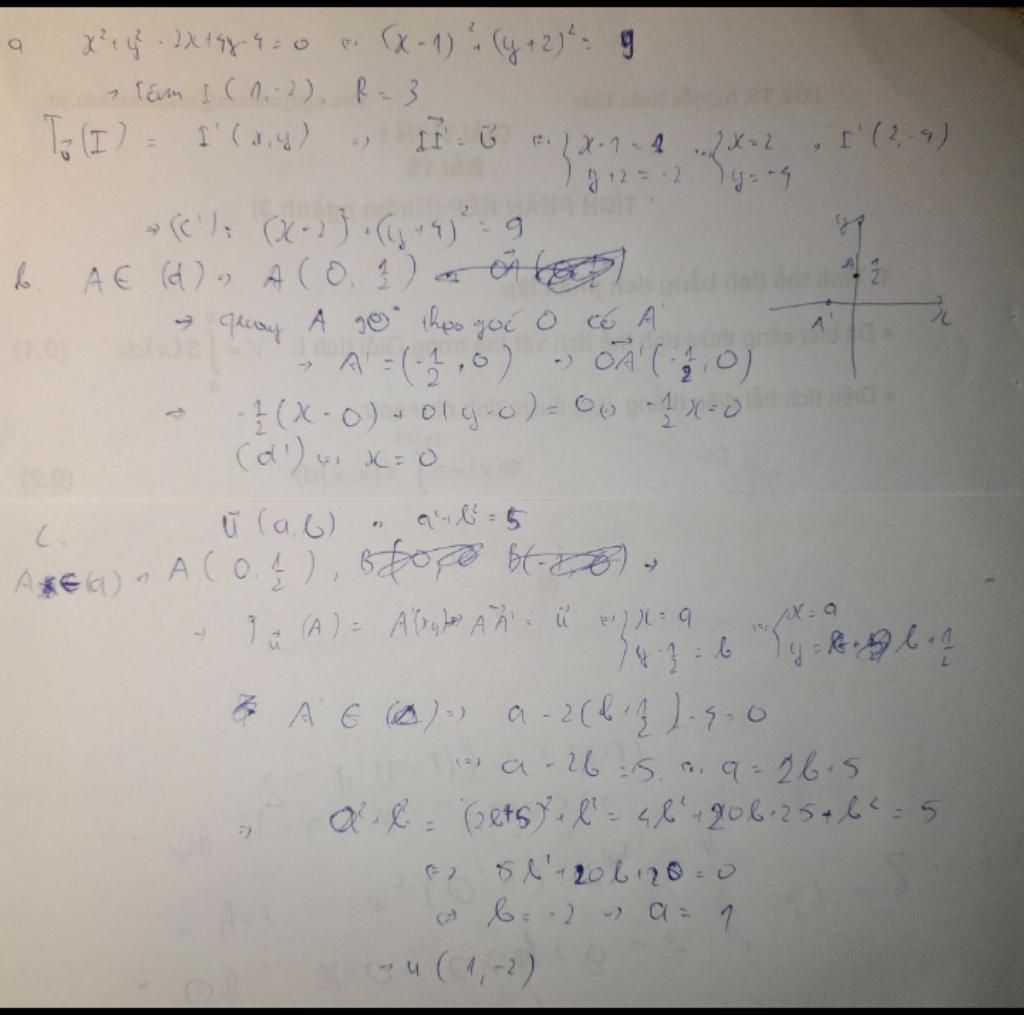 a. x² + y² - 2x + 4y - 4 = 0 ⇔ (x-1)² + (y+2)² = 9
→ Tâm I (1, -2), R = 3
T_v⃗ (I) = I' (x, y) ⇒ II'⃗ = v⃗ ⇔ { x-1 = 1 ; y+2 = -2 ⇔ { x = 2 ; y = -4 , I' (2, -4)
→ (C'): (x-2)² + (y+4)² = 9
b. A ∈ (d) ⇒ A (0, 1/2)
→ quay A 90° theo góc O có A'
→ A' = (-1/2, 0) → OA'⃗ (-1/2, 0)
⇒ -1/2 (x - 0) + 0(y - 0) = 0 ⇔ -1/2 x = 0
(d') ⇔ x = 0
y
A 1/2
A' x
c. u⃗ (a, b) ⇒ a² + b² = 5
A ∈ (d) ⇒ A (0, 1/2),
→ T_u⃗ (A) = A'(x,y) ⇒ AA'⃗ = u⃗ ⇔ { x = a ; y - 1/2 = b ⇔ { x = a ; y = b + 1/2
A' ∈ (Δ) ⇒ a - 2(b + 1/2) - 4 = 0
⇔ a - 2b = 5 ⇔ a = 2b + 5
⇒ a² + b² = (2b+5)² + b² = 4b² + 20b + 25 + b² = 5
⇔ 5b² + 20b + 20 = 0
⇔ b = -2 ⇒ a = 1
→ u (1, -2)